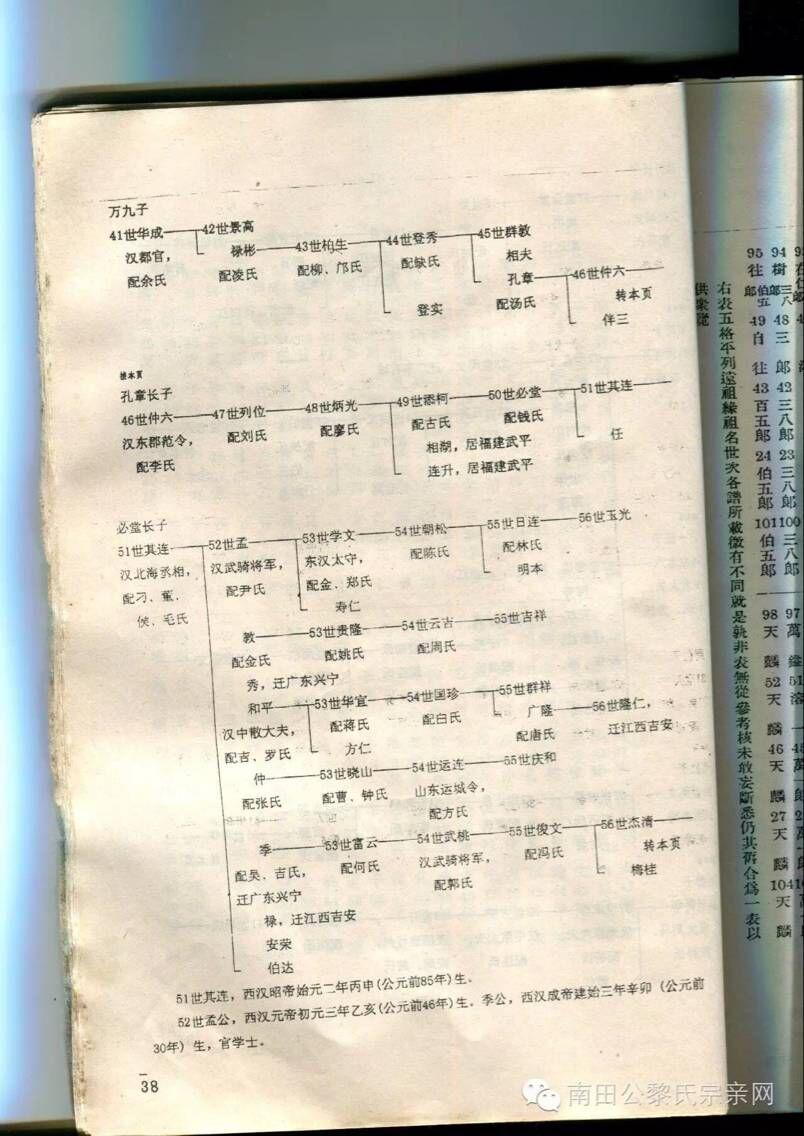 万九子
41世华成 42世景高 45世群教
汉都官, 禄彬 43世柏生 44世登秀 相夫
配余氏 配凌氏 配柳、邝氏 配缺氏 孔章 46世仲六
登实 配汤氏 转本页
伴三
接本页
孔章长子
46世仲六 47世列位 48世炳光 49世添柯 50世必堂 51世其连
汉东郡范令, 配刘氏 配廖氏 配古氏 配钱氏 任
配李氏 相湖,居福建武平
连升,居福建武平
必堂长子
51世其连 52世孟 53世学文 54世朝松 55世日连 56世玉光
汉北海丞相, 汉武骑将军, 东汉太守, 配陈氏 配林氏
配刁、董、 配尹氏 配金、郑氏 明本
侯、毛氏 寿仁
教 53世贵隆 54世云古 55世吉祥
配金氏 配姚氏 配周氏
秀,迁广东兴宁
和平 53世华宜 54世国珍 55世群祥
汉中散大夫, 配蒋氏 配白氏 广隆 56世隆仁,
配吉、罗氏 方仁 配唐氏 迁江西吉安
仲 53世晓山 54世运连 55世庆和
配张氏 配曹、钟氏 山东运城令,
配方氏
季 53世富云 54世武桃 55世俊文 56世杰清
配吴、吉氏, 配何氏 汉武骑将军, 配冯氏 转本页
迁广东兴宁 配郭氏 梅桂
禄,迁江西吉安
安荣
伯达
51世其连,西汉昭帝始元二年丙申(公元前85年)生。
52世孟公,西汉元帝初元三年乙亥(公元前46年)生。季公,西汉成帝建始三年辛卯(公元前
30年)生,官学士。
38
95 94
往 樹
郎 伯五郎 三八
49 48
自 三
往 郎
43 42
百 三
五 八
郎 郎
24 23
伯 三
五 八
郎 郎
101 100
伯 三
五 八
郎 郎
98 97
天 萬
麟
52 51
天
麟
46
天
麟
27
天
麟
104
天
麟
右表五格平列遠祖緣祖名世次各譜所載徵有不同就是孰非表無從參考核未敢妄斷悉仍其舊合為一表以
供衆覽
南田公黎氏宗亲网